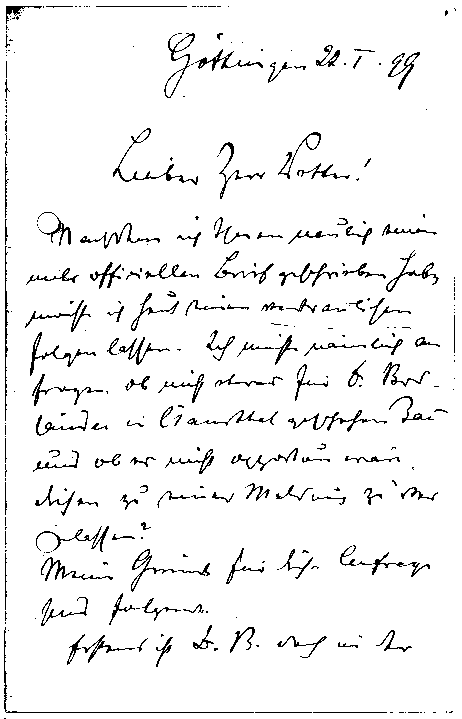 Göttingen 22. I. 99
Lieber Herr Vetter!
Nachdem ich Ihnen neulich einen
mehr officiellen Brief geschrieben habe
muß ich heut einen vertraulichen
folgen lassen. Ich muß nämlich an
fragen, ob nicht etwas für
in Clausthal geschehen kann
und ob es nicht opportun wäre
diesen zu einer Meldung zu ver
anlassen?
Meine Gründe für diese Anfrage
sind folgende.
Erstens ist B. doch in der